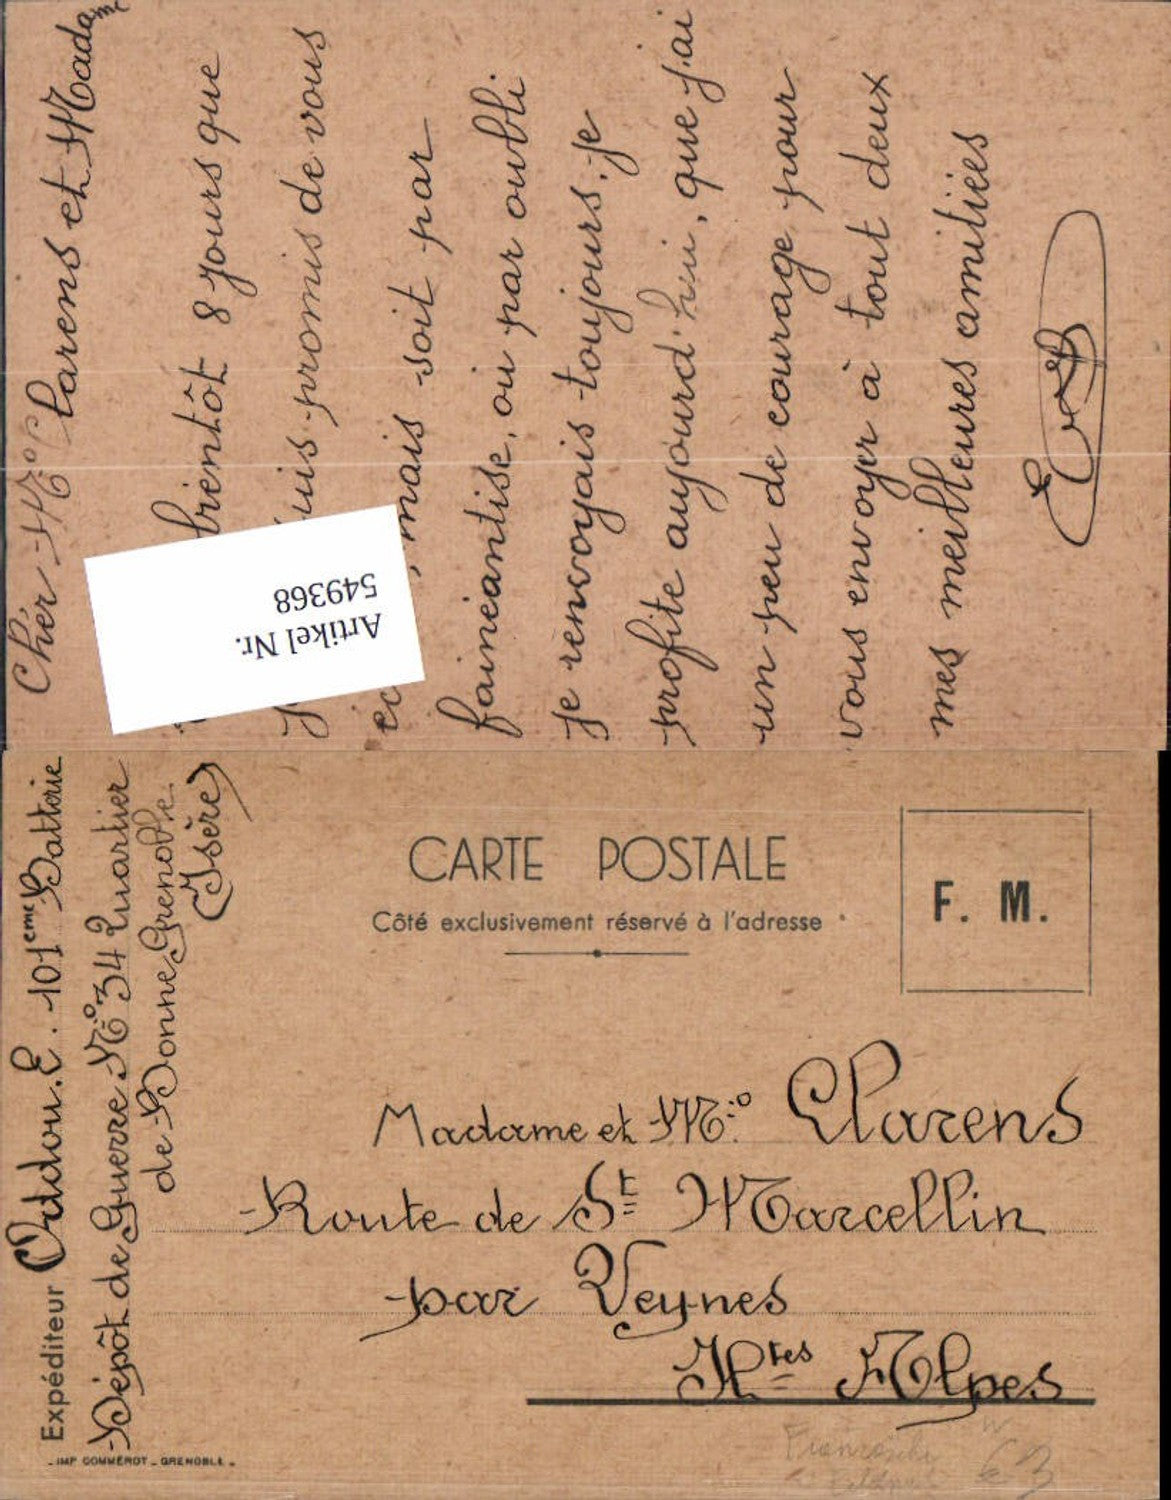 Cher M:º Clarens et Madame
bientôt 8 jours que
suis promis de vous
, mais soit par
fainéantise, ou par oubli
je renvoyais toujours. je
profite aujourd'hui, que j'ai
un peu de courage pour
vous envoyer à tout deux
mes meilleures amitiées
Artikel Nr.
549368
Expéditeur Oddou. E. 101eme Batterie
Dépôt de Guerre N:º 34 Quartier
de Bonne Grenoble.
(Isère)
IMP GOMMEROT - GRENOBLE -
CARTE POSTALE
Côté exclusivement réservé à l'adresse
F. M.
Madame et M:º Clarens
Route de St Marcellin
par Veynes
Htes Alpes
63